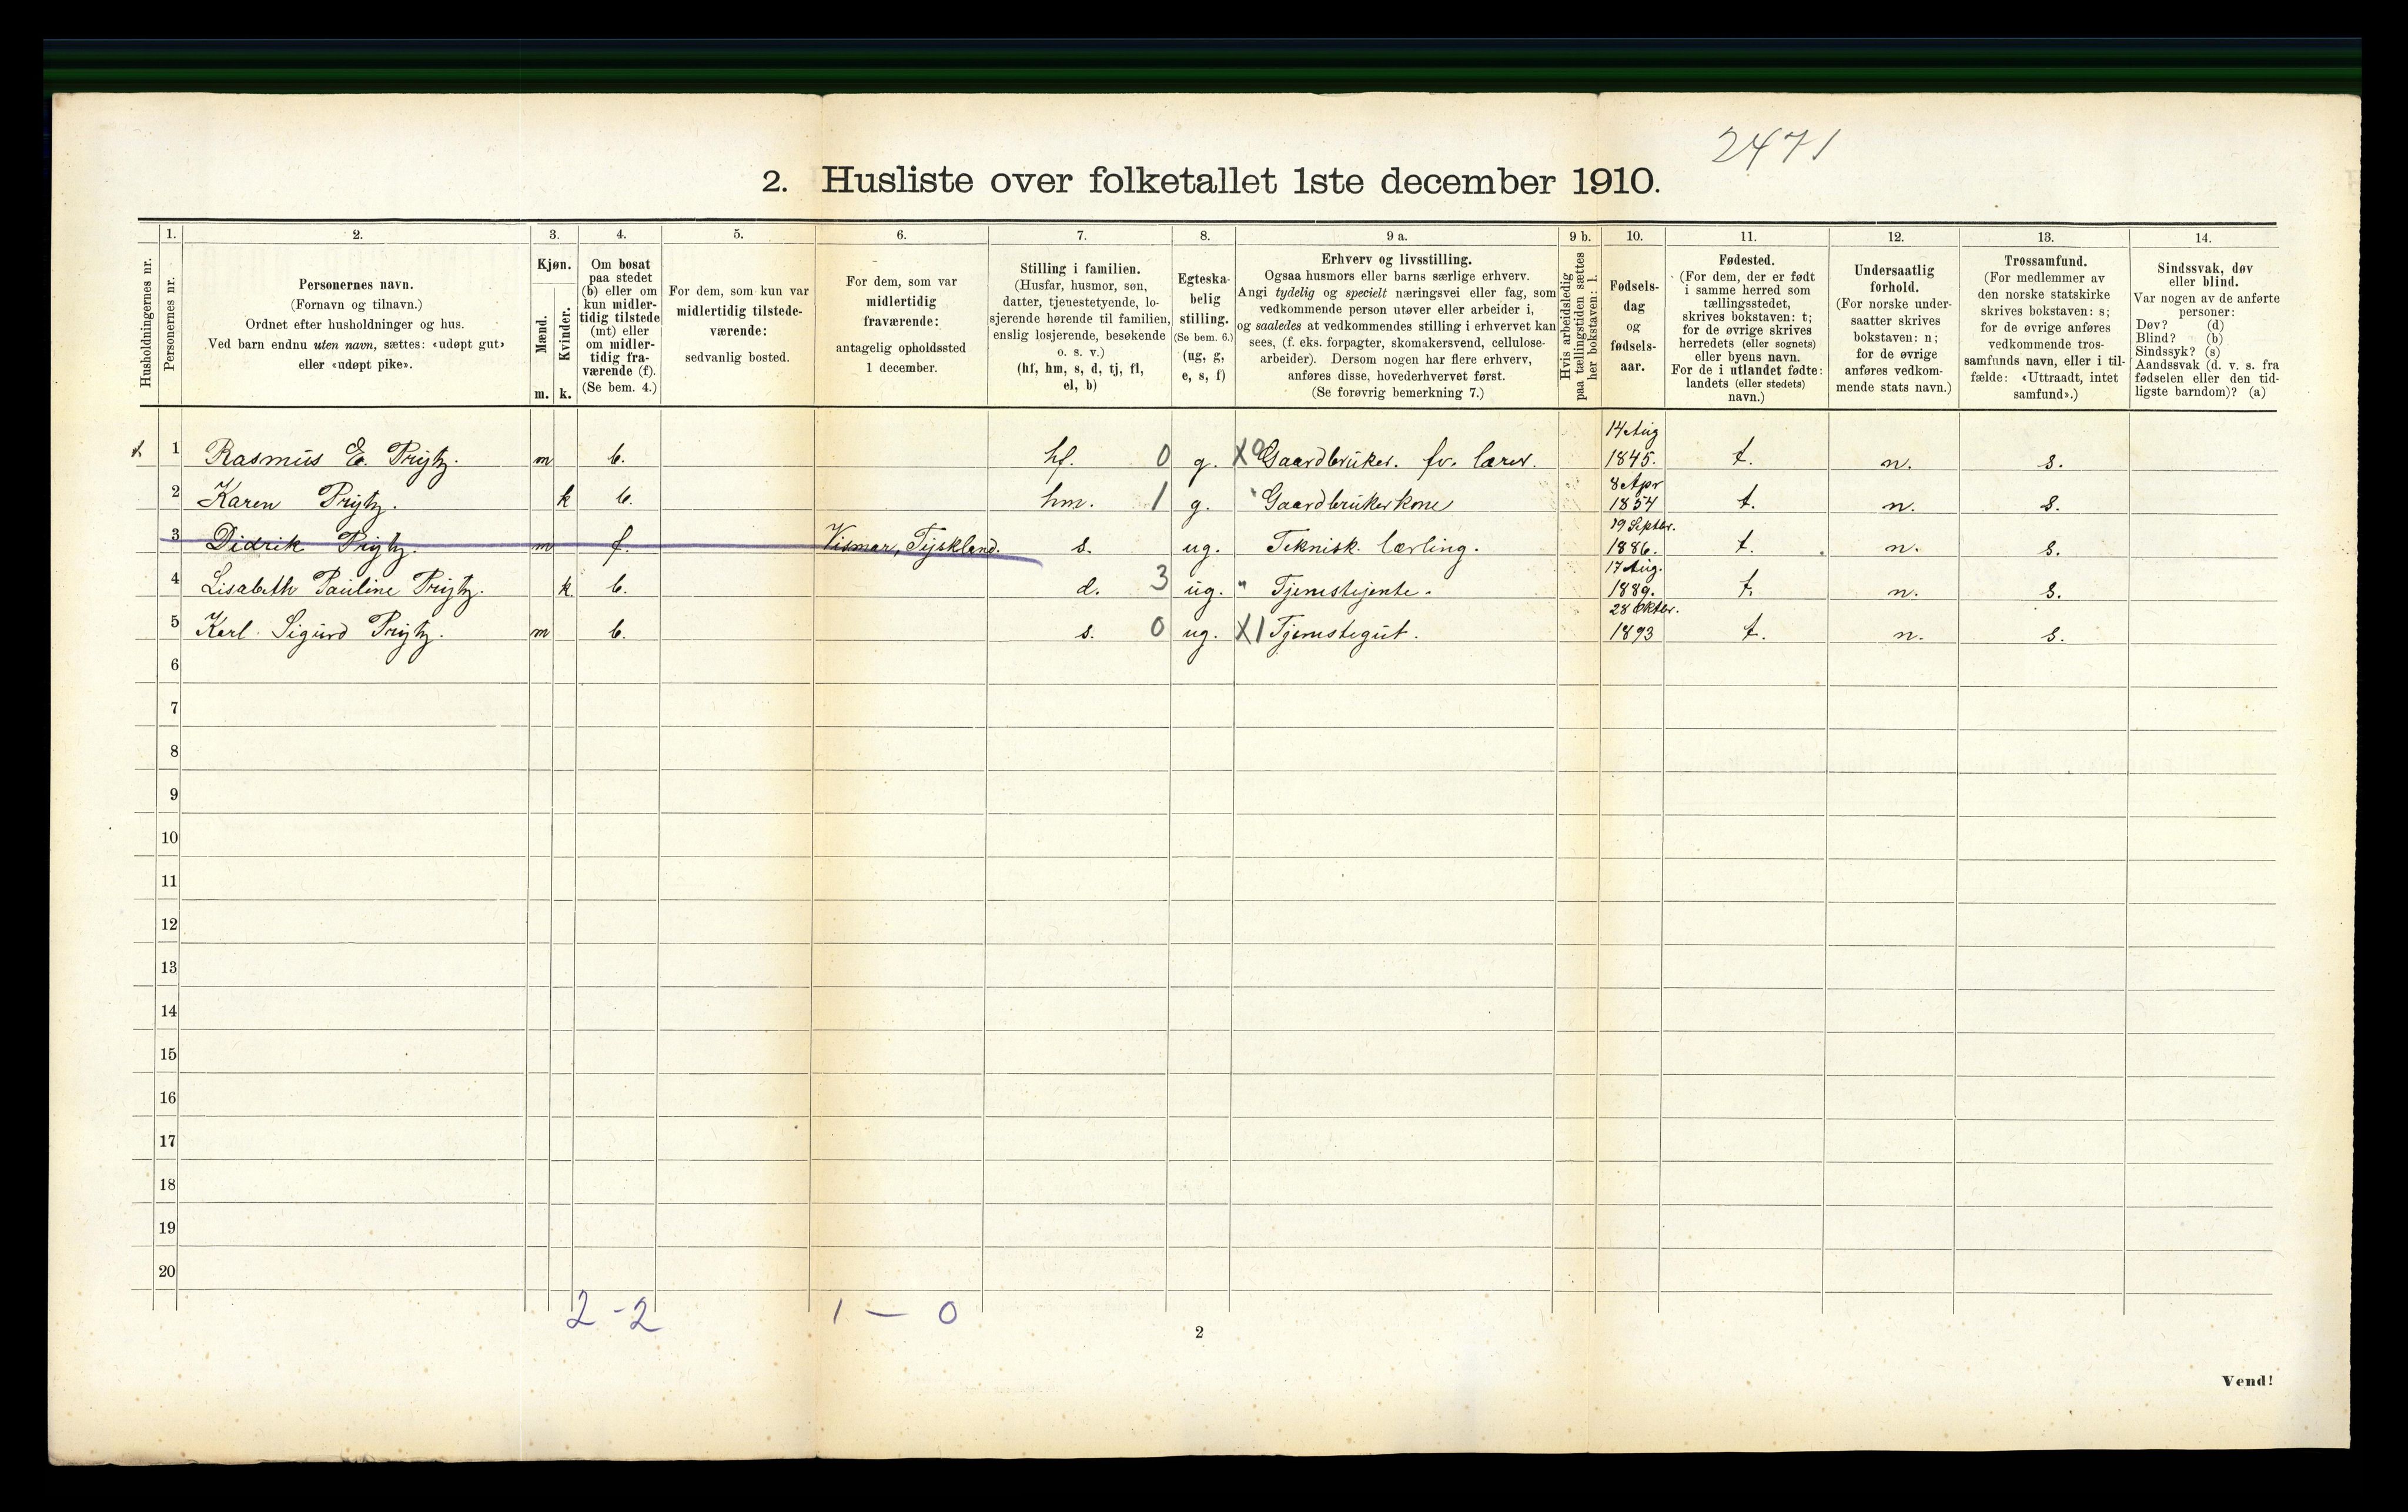 2471
2. Husliste over folketallet 1ste december 1910.
Husholdningernes nr.
1. Personernes nr.
2. Personernes navn.
(Fornavn og tilnavn.)
Ordnet efter husholdninger og hus.
Ved barn endnu uten navn, sættes: «udøpt gut»
eller «udøpt pike».
3. Kjøn.
Mænd. m.
Kvinder. k.
4. Om bosat
paa stedet
(b) eller om
kun midler-
tidig tilstede
(mt) eller
om midler-
tidig fra-
værende (f).
(Se bem. 4.)
5. For dem, som kun var
midlertidig tilstede-
værende:
sedvanlig bosted.
6. For dem, som var
midlertidig
fraværende:
antagelig opholdssted
1 december.
7. Stilling i familien.
(Husfar, husmor, søn,
datter, tjenestetyende, lo-
sjerende hørende til familien,
enslig losjerende, besøkende
o. s. v.)
(hf, hm, s, d, tj, fl,
el, b)
8. Egteska-
belig
stilling.
(Se bem. 6.)
(ug, g,
e, s, f)
9 a. Erhverv og livsstilling.
Ogsaa husmors eller barns særlige erhverv.
Angi tydelig og specielt næringsvei eller fag, som
vedkommende person utøver eller arbeider i,
og saaledes at vedkommendes stilling i erhvervet kan
sees, (f. eks. forpagter, skomakersvend, cellulose-
arbeider). Dersom nogen har flere erhverv,
anføres disse, hovederhvervet først.
(Se forøvrig bemerkning 7.)
9 b. Hvis arbeidsledig
paa tællingstiden sættes
her bokstaven: l.
10. Fødsels-
dag
og
fødsels-
aar.
11. Fødested.
(For dem, der er født
i samme herred som
tællingsstedet,
skrives bokstaven: t;
for de øvrige skrives
herredets (eller sognets)
eller byens navn.
For de i utlandet fødte:
landets (eller stedets)
navn.)
12. Undersaatlig
forhold.
(For norske under-
saatter skrives
bokstaven: n;
for de øvrige
anføres vedkom-
mende stats navn.)
13. Trossamfund.
(For medlemmer av
den norske statskirke
skrives bokstaven: s;
for de øvrige anføres
vedkommende tros-
samfunds navn, eller i til-
fælde: «Uttraadt, intet
samfund».)
14. Sindssvak, døv
eller blind.
Var nogen av de anførte
personer:
Døv? (d)
Blind? (b)
Sindssyk? (s)
Aandssvak (d. v. s. fra
fødselen eller den tid-
ligste barndom)? (a)
1 Rasmus E. Prytz. m b. hf. 0 g. X0 Gaardbruker. fv. lærer. 14 Aug 1845. t. n. s.
2 Karen Prytz. k b. hm. 1 g. Gaardbrukerkone 8 Apr 1854 t. n. s.
3 Didrik Prytz. m f. Vismar, Tyskland. s. ug. Teknisk lærling. 19 Septbr. 1886. t. n. s.
4 Lisabeth Pauline Prytz. k b. d. 3 ug. " Tjenestejente. 17 Aug. 1889. t. n. s.
5 Karl Sigurd Prytz. m b. s. 0 ug. X1 Tjenestegut. 28 Oktbr. 1893 t. n. s.
6
7
8
9
10
11
12
13
14
15
16
17
18
19
20
2 - 2 1 — 0
2
Vend!